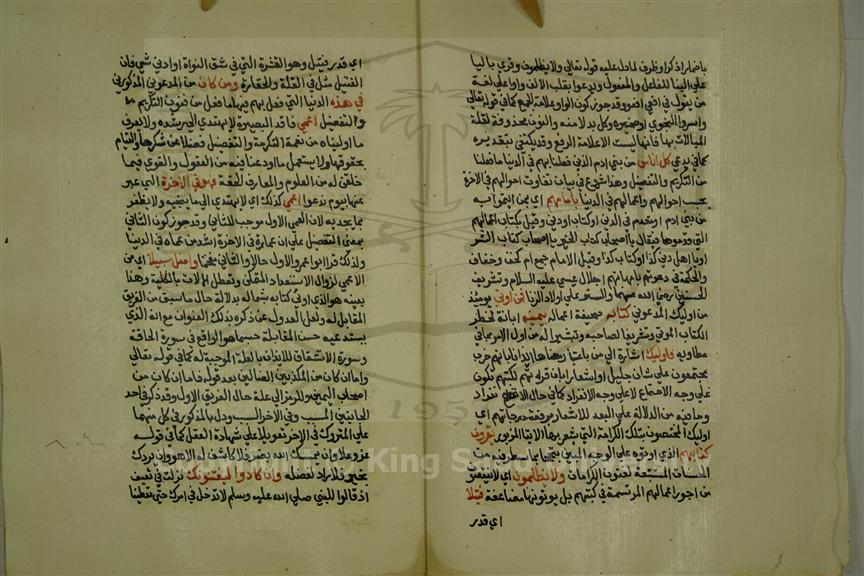 باضمار اذكر او ظرف لما دل عليه قوله تعالى ولا يظلمون وقرئ باليا
على البنا للفاعل والمفعول ويدعوا بقلب الالف واوا على لغة
من يقول في افعى افعو وقد جوز كون الواو علامة الجمع كما في قوله تعالى
واسروا النجوى او ضميره وكل بدلا منه والنون محذوفة لقلة
المبالات بها فانها ليست الا علامة الرفع وقد يكتفى بتقديره
كما في يدعى كل اناس من بني ادم الذين فعلنا بهم في الدنيا ما فعلنا
من التكريم والتفضيل وهذا شروع في بيان تفاوت احوالهم في الاخرة
بحسب احوالهم واعمالهم في الدنيا بامامهم اي بمن ايتموا به
من نبي او مقدم في الدين او كتاب او دين وقيل بكتاب اعمالهم
التي قدموها فيقال يا اصحاب كتاب الخير يا اصحاب كتاب الشر
او يا اهل دين كذا او كتاب كذا وقيل الامام جمع ام كخف وخفاف
والحكمة في دعوتهم بامهاتهم اجلال عيسى عليه السلام وتشريف
الحسنين رضي الله عنهما والستر على اولاد الزنا فمن اوتي يومئذ
من اوليك المدعوين كتابه صحيفة اعماله بيمينه ابانة لخطر
الكتاب الموتى وتشريفا لصاحبه وتبشيرا له من اول الامر بما في
مطاويه فاوليك اشارة الى من باعتبار معناها ايذانا بانهم حزب
مجتمعون على شان جليل او اشعارا بان قراتهم لكتبهم تكون
على وجه الاجتماع لا على وجه الانفراد كما في حال الايتا
وما فيه من الدلالة على البعد للاشعار برفعة درجاتهم اي
اوليك المختصون بتلك الكرامة التي يشعر بها الايتا المزبور يقرون
كتابهم الذي اوتوه على الوجه المبين تبجحا بما سطر فيه من
الحسنات المستتبعة لفنون الكرامات ولا يظلمون اي لا ينقصون
من اجور اعمالهم المرتسمة في كتبهم بل يوتونها مضاعفة فتيلا
اي قدر
اي قدر فتيل وهو القشرة التي في شق النواة او ادنى شي فان
الفتيل مثل في القلة والحقارة ومن كان من المدعوين المذكورين
في هذه الدنيا التي فعل بهم فيها ما فعل من فنون التكريم
والتفضيل اعمى فاقد البصيرة لا يهتدي الى رشده ولا يعرف
ما اوليناه من نعمة التكرمة والتفضيل فضلا عن شكرها والقيام
بحقوقها ولا يستعمل ما اودعنا فيه من العقول والقوى فيما
خلقن له من العلوم والمعارف الحقة فهو في الاخرة التي عبر
عنها بيوم ندعوا اعمى كذلك اي لا يهتدي الى ما ينجيه ولا يظفر
بما يجديه لان العمى الاول موجب للثاني وقد جوز كون الثاني
بمعنى التفضيل على ان عماه في الاخرة اشد من عماه في الدنيا
ولذلك قرا ابو عمرو الاول ممالا والثاني مفخما واضل سبيلا اي من
الاعمى لزوال الاستعداد الممكن وتعطل الالات بالكلية وهذا
بعينه هو الذي اوتي كتابه بشماله بدلالة حال ما سبق من الفريق
المقابل له ولعل العدول عن ذكره بذلك العنوان مع انه الذي
يستدعيه حسن المقابلة حسبما هو الواقع في سورة الحاقة
وسورة الانشقاق للايذان بالعلة الموجبة له كما في قوله تعالى
واما ان كان من المكذبين الضالين بعد قوله فاما ان كان من
اصحاب اليمين وللرمز الى علة حال الفريق الاول وقد ذكر في احد
الجانبين المسبب وفي الاخر السبب ودل بالمذكور في كل منهما
على المتروك في الاخر تعويلا على شهادة العقل كما في قوله
عز وعلا وان يمسسك الله بضر فلا كاشف له الا هو وان يردك
بخير فلا راد لفضله وان كادوا ليفتنونك نزلت في ثقيف
اذ قالوا للنبي صلى الله عليه وسلم لا ندخل في امرك حتى تعطينا